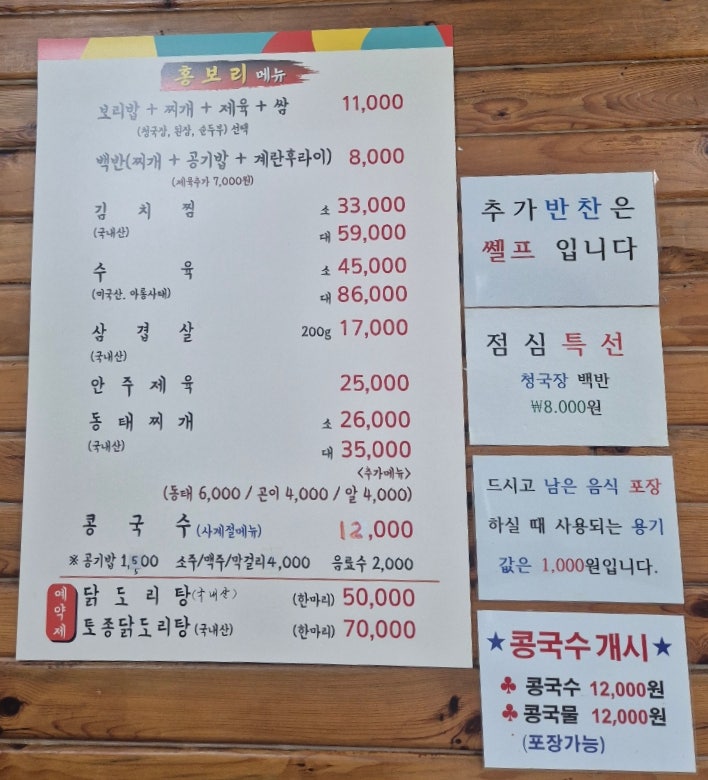 홍보리 메뉴
보리밥 + 찌개 + 제육 + 쌈 11,000
(청국장, 된장, 순두부) 선택
백반(찌개 + 공기밥 + 계란후라이) 8,000
(제육추가 7,000원)
김치찜 소 33,000
(국내산) 대 59,000
수육 소 45,000
(미국산. 아롱사태) 대 86,000
삼겹살 200g 17,000
(국내산)
안주제육 25,000
동태찌개 소 26,000
(국내산) 대 35,000
<추가메뉴>
(동태 6,000 / 곤이 4,000 / 알 4,000)
콩국수 (사계절메뉴) 12,000
※ 공기밥 1,500 소주/맥주/막걸리 4,000 음료수 2,000
예약제
닭도리탕 (국내산) (한마리) 50,000
토종닭도리탕 (국내산) (한마리) 70,000
추가반찬은
쎌프 입니다
점심특선
청국장 백반
₩8.000원
드시고 남은 음식 포장
하실 때 사용되는 용기
값은 1,000원입니다.
★콩국수개시★
♣ 콩국수 12,000원
♣ 콩국물 12,000원
(포장가능)